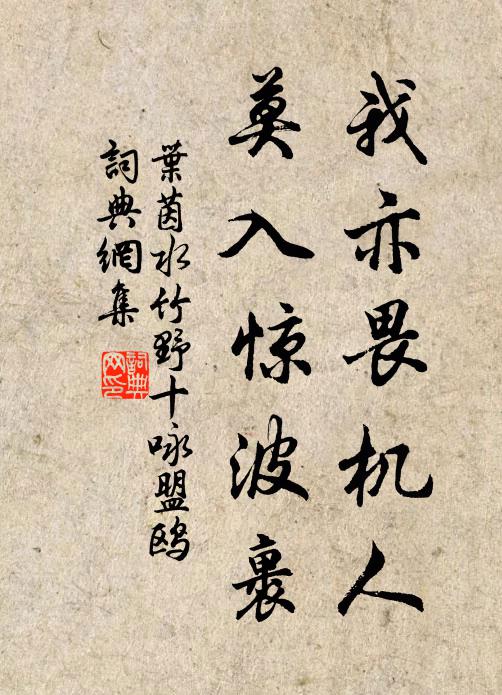 我亦畏机人
莫入惊波裏
葉茵水竹野十咏盟鸥
詞典網集
詞典
网印